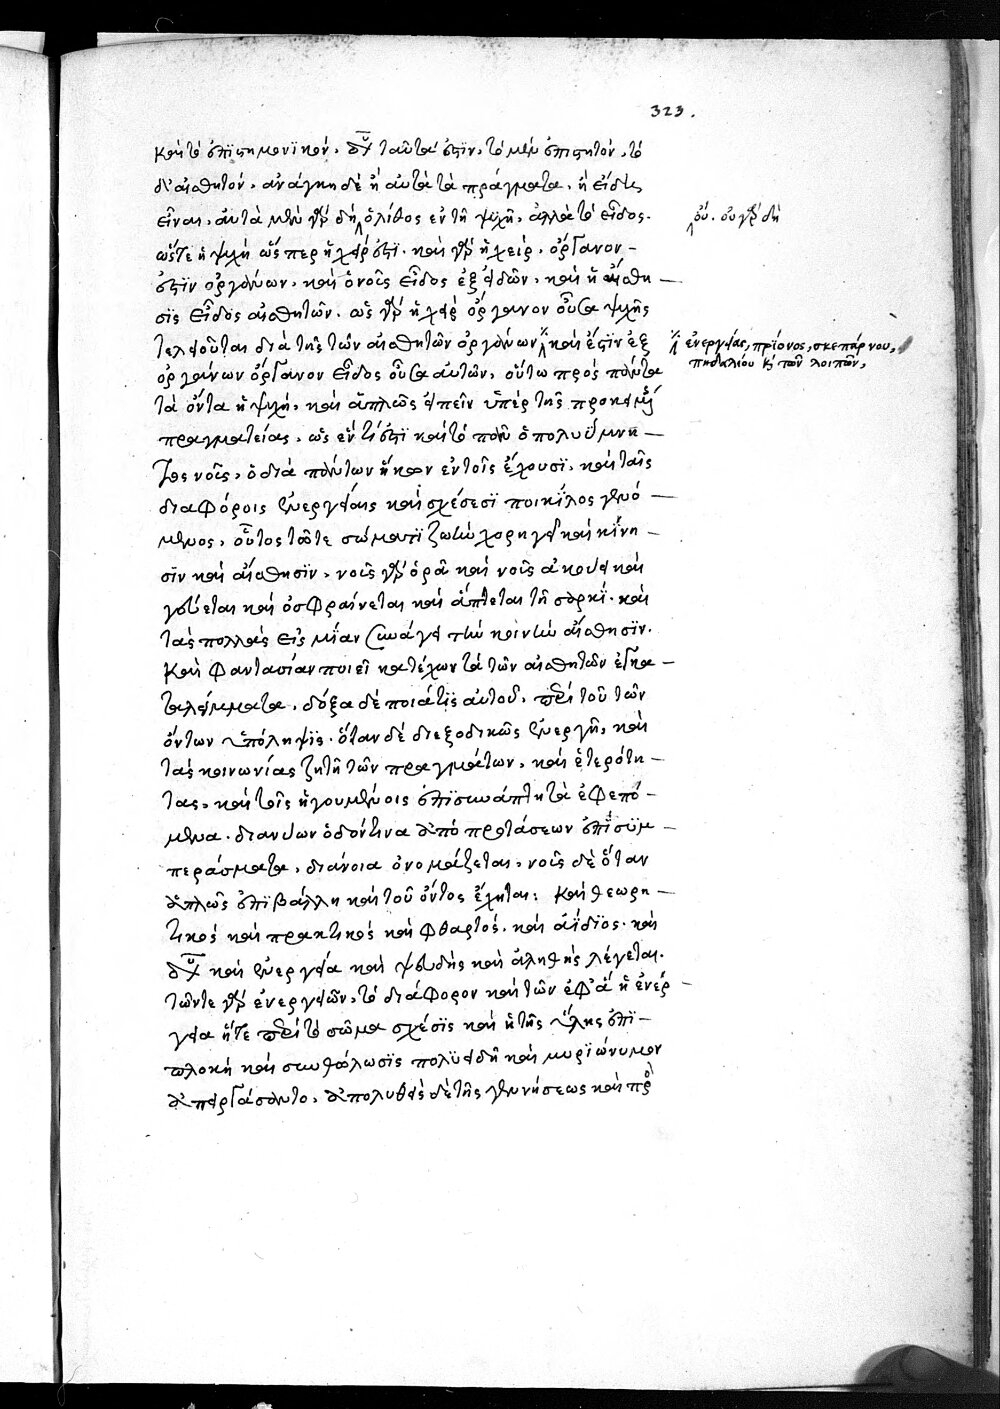 323.
καὶ τὸ ἐπιστημονικόν. δυ ταῦτά ἐστιν, τὸ μὲν ἐπιστητόν, τὸ
δ' αἰσθητόν. ἀνάγκη δὲ ἢ αὐτὰ τὰ πράγματα, ἢ εἴδη
εἶναι. αὐτὰ μὲν γὰρ δὴ ὁ λίθος ἐν τῇ ψυχῇ, ἀλλὰ τὸ εἶδος.
οὔ. οὐ γὰρ δὴ
ὥστε ἡ ψυχὴ ὥσπερ ἡ χείρ ἐστι. καὶ γὰρ ἡ χεὶρ, ὄργανον
ἐστὶν ὀργάνων. καὶ ὁ νοῦς εἶδος ἐξ εἰδῶν. καὶ ἡ αἴσθη
σις εἶδος αἰσθητῶν. ὡς γὰρ ἡ χεὶρ ὄργανον οὖσα ψυχῆς
τελειοῦται διὰ τῆς τῶν αἰσθητῶν ὀργάνων καὶ ἔστιν ἐξ
ἐνεργείας, πρίονος, σκεπάρνου,
πηδαλίου κ τῶν λοιπῶν,
ὀργάνων ὄργανον εἶδος οὖσα αὐτῶν, οὕτω πρὸς πάντα
τὰ ὄντα ἡ ψυχή. καὶ ἁπλῶς εἰπεῖν ὑπὲρ τῆς προκειμένης
πραγματείας, ὡς ἕν τί ἐστι καὶ τὸ πᾶν ὁ πολυΰμνη
τος νοῦς, ὁ διὰ πάντων ἥκων ἐν τοῖς ἔχουσι. καὶ ταῖς
διαφόροις ἐνεργείαις καὶ σχέσεσι ποικίλος γενό
μενος, οὗτος τῷ τε σώματι ζωὴν χορηγεῖ καὶ κίνη
σιν καὶ αἴσθησιν. νοῦς γὰρ ὁρᾶ καὶ νοῦς ἀκούει καὶ
γεύεται καὶ ὀσφραίνεται καὶ ἅπτεται τῇ σαρκί. καὶ
τὰς πολλὰς εἰς μίαν συνάγει τὴν κοινὴν αἴσθησιν.
καὶ φαντασίαν ποιεῖ κατέχων τὰ τῶν αἰσθητῶν ἐγκα
ταλείμματα. δόξα δὲ ποιά τις αὐτοῦ, περὶ τοῦ τῶν
ὄντων ὑπόληψις. ὅταν δὲ διεξοδικῶς ἐνεργῇ, καὶ
τὰς κοινωνίας ζητῇ τῶν πραγμάτων, καὶ ἑτερότη
τας, καὶ τοῖς ἡγουμένοις ἐπισυνάπτη τὰ ἐφεπό
μενα. διανύων ὁδόν τινα ἀπὸ προτάσεων ἐπὶ συμ
περάσματα, διάνοια ὀνομάζεται, νοῦς δὲ ὅταν
ἁπλῶς ἐπιβάλλη καὶ τοῦ ὄντος ἔχηται: καὶ θεωρη
τικὸς καὶ πρακτικὸς καὶ φθαρτὸς. καὶ ἀΐδιος. καὶ
δυ καὶ ἐνεργεία καὶ ψευδὴς καὶ ἀληθὴς λέγεται.
τῶν τε γὰρ ἐνεργειῶν, τὸ διάφορον καὶ τῶν ἐφ' ἃ ἡ ἐνέρ
γεια ἥτε περὶ τὸ σῶμα σχέσις καὶ ἡ τῆς ὕλης ἐπι
πλοκὴ καὶ συνθόλωσις πολυειδῆ καὶ μυριώνυμον
ἀπειργάσαντο. ἀπολυθεὶς δὲ τῆς γεννήσεως καὶ πρὸ